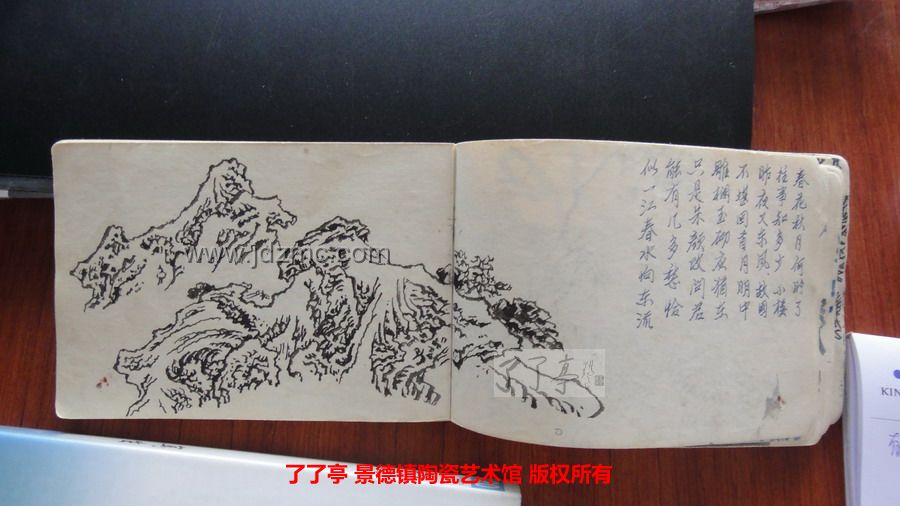 春花秋月何时了
往事知多少小楼
昨夜又东风故国
不堪回首月明中
雕栏玉砌应犹在
只是朱颜改问君
能有几多愁恰
似一江春水向东流
www.jdzmc.com
了了亭
KIN
了了亭 景德镇陶瓷艺术馆 版权所有